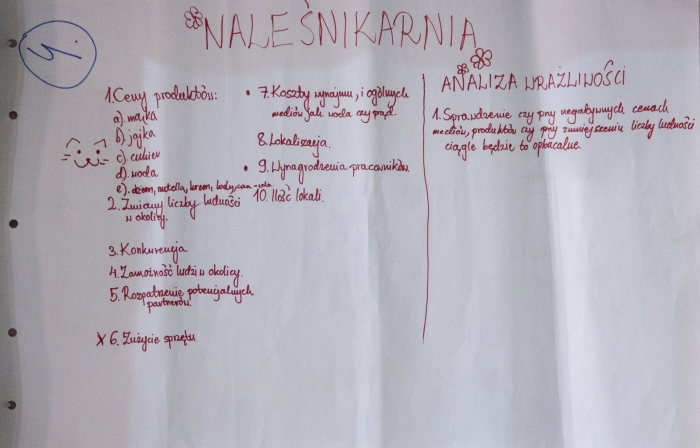 NALEŚNIKARNIA
1. Ceny produktów:
a). mąka
b). jajka
c). cukier
d). woda
e). dżem, nutella, krem,
2. Zmiany liczby ludności
w okolicy.
3. Konkurencja
4. Zamożność ludzi w okolicy.
5. Rozpatrzenie potencjalnych
partnerów.
x 6. Zużycie sprzętu
• 7. Koszty wynajmu, i ogólnych
mediów jak woda czy prąd.
8. Lokalizacja.
• 9. Wynagrodzenia pracowników.
10. Ilość lokali.
ANALIZA WRAŻLIWOŚCI
1. Sprawdzenie czy przy negatywnych cenach
mediów, produktów czy przy zmniejszeniu liczby ludności
ciągle będzie to opłacalne.